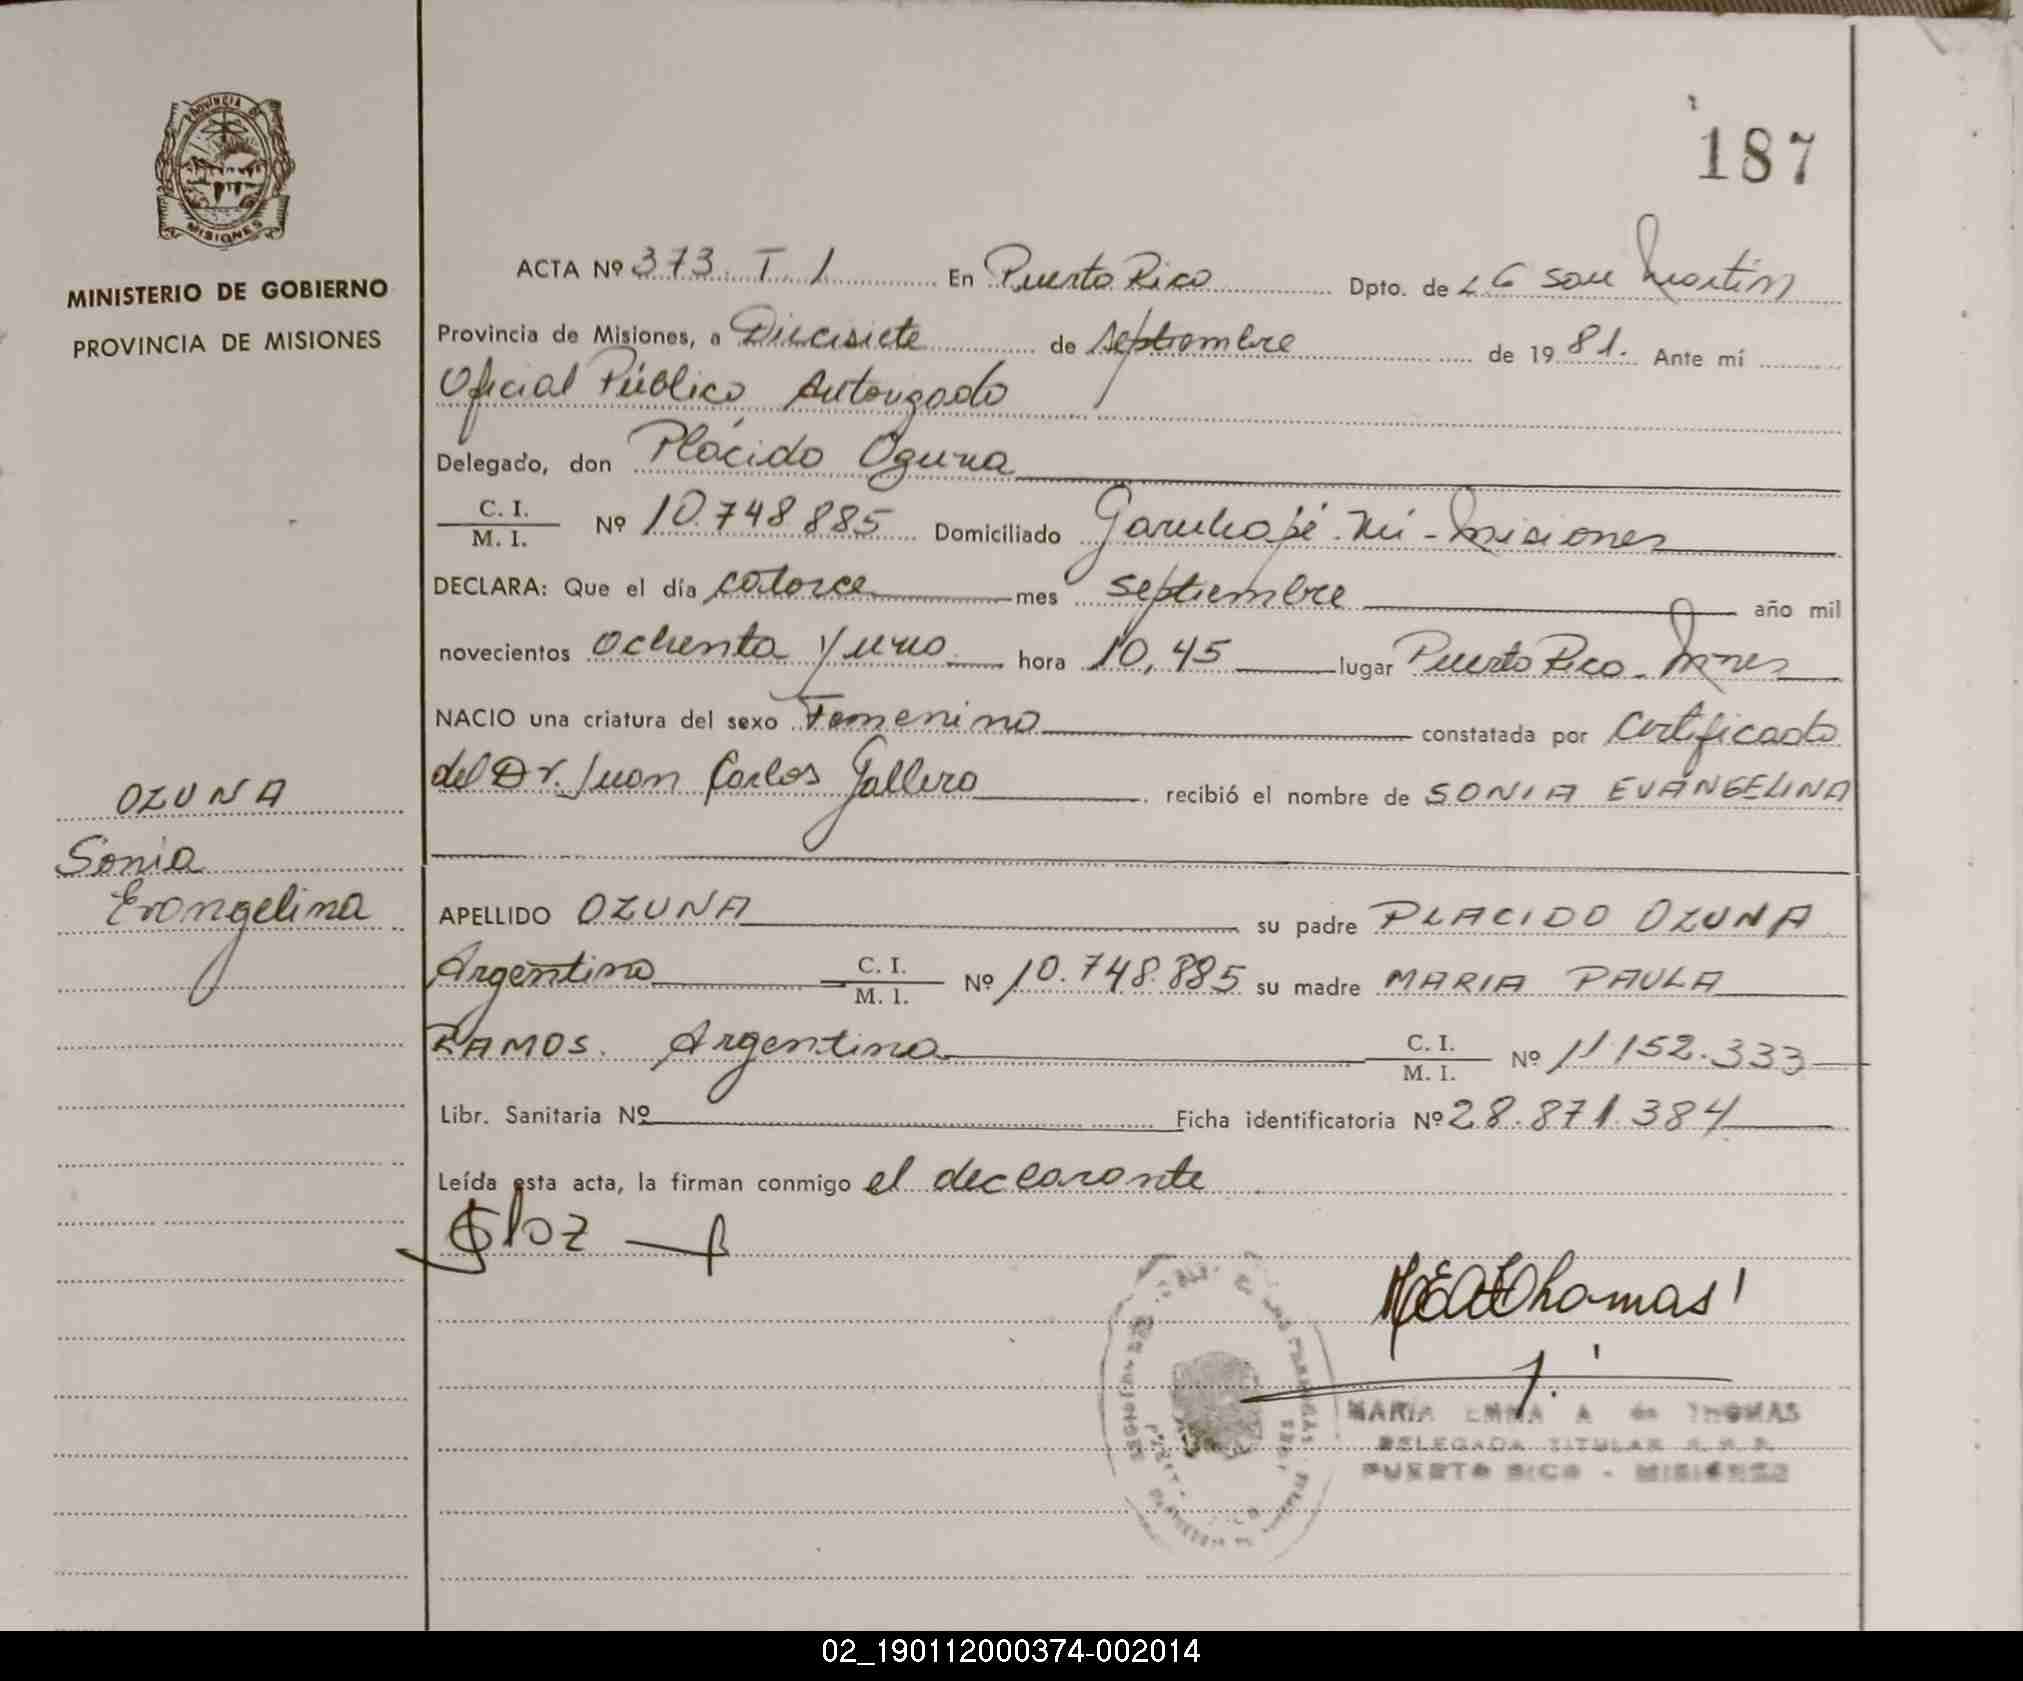 187
PROVINCIA DE
MISIONES
MINISTERIO DE GOBIERNO
PROVINCIA DE MISIONES
ACTA Nº 373 T 1 En Puerto Rico Dpto. de L G San Martín
Provincia de Misiones, a Diecisiete de septiembre de 1981. Ante mí
Oficial Público Autorizado
Delegado, don Plácido Ozuna
C. I.
M. I. Nº 10.748.885 Domiciliado Garuhapé-Mí-Misiones
DECLARA: Que el día catorce mes septiembre año mil
novecientos ochenta y uno hora 10,45 lugar Puerto Rico - Mnes
NACIO una criatura del sexo Femenino constatada por Certificado
del Dr. Juan Carlos Gallero recibió el nombre de SONIA EVANGELINA
OZUNA
Sonia
Evangelina
APELLIDO OZUNA su padre PLACIDO OZUNA
Argentino C. I. M. I. Nº 10.748.885 su madre MARIA PAULA
RAMOS. Argentina C. I. M. I. Nº 11.152.333
Libr. Sanitaria Nº Ficha identificatoria Nº 28.871.384
Leída esta acta, la firman conmigo el declarante
Thomas
MARIA EMMA A de THOMAS
DELEGADA TITULAR R. P.
PUERTO RICO - MISIONES
02_190112000374-002014